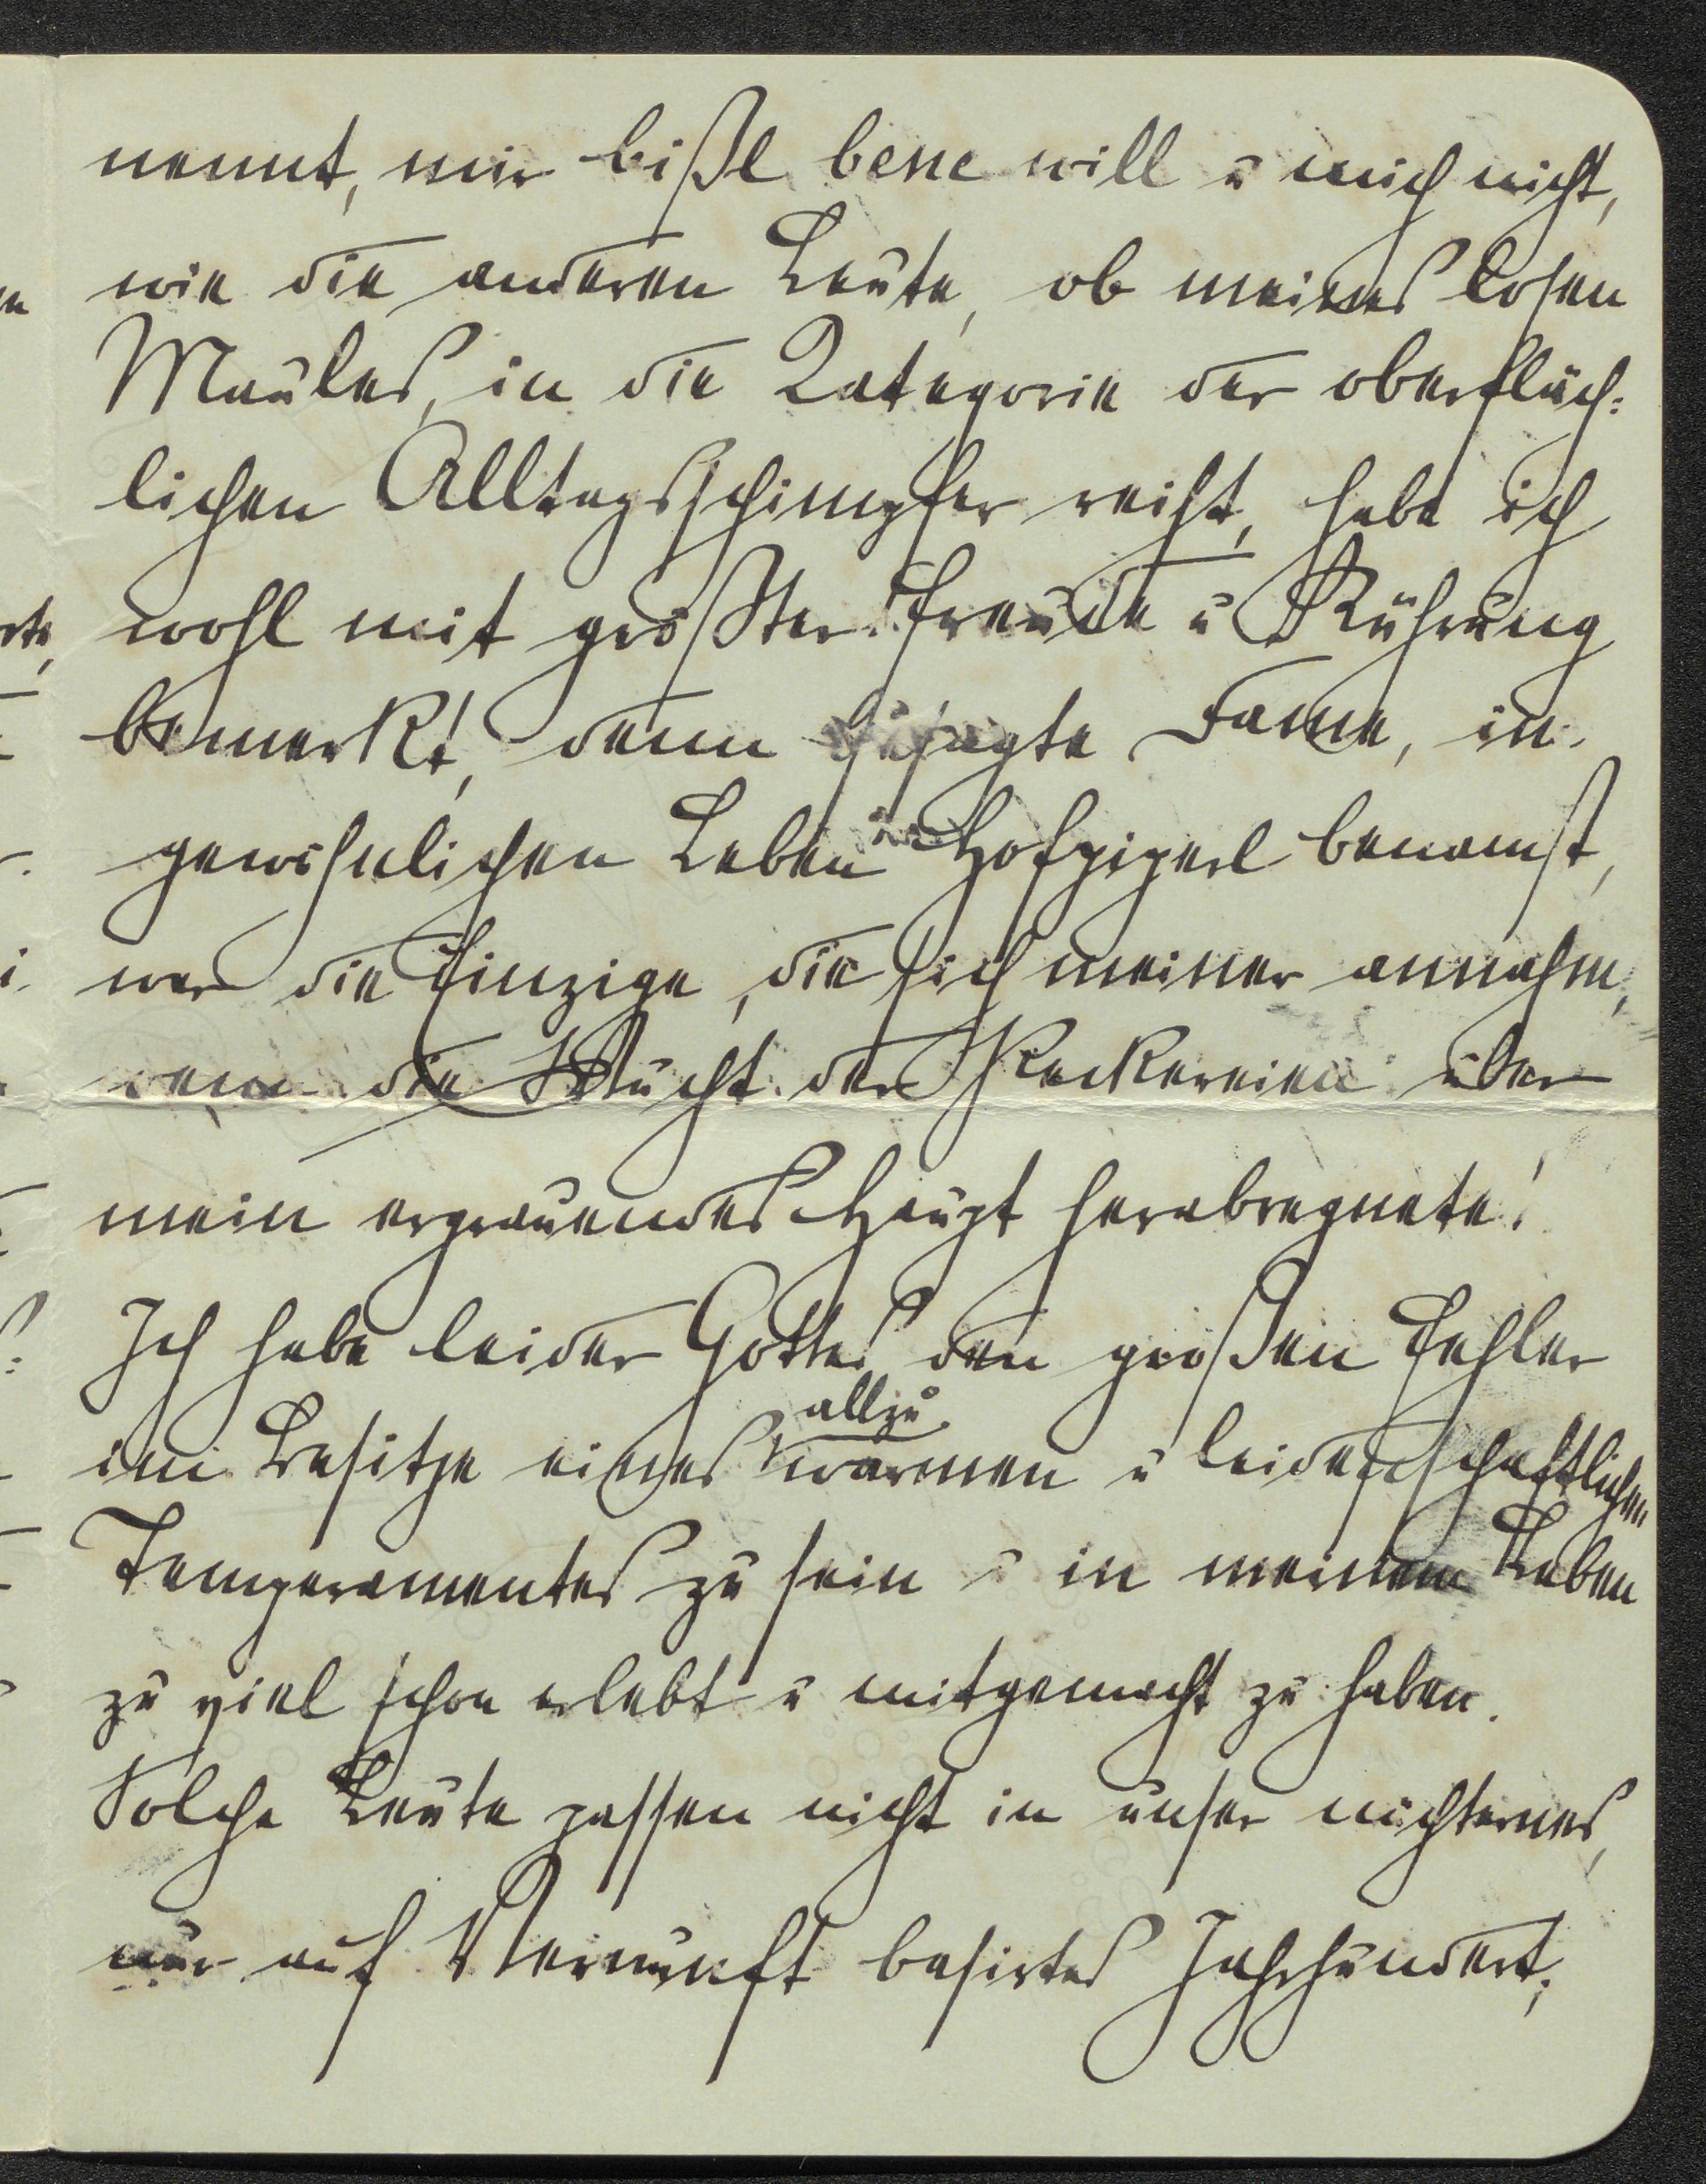 nennt, mir bißl bene will u mich nicht,
wie die anderen Leute, ob meines losen
Maules, in die Kategorie der oberfläch-
lichen Alltagsschimpfer reiht, habe ich
wohl mit größter Freude u Rührung
bemerkt, denn besagte Dame, in
gewöhnlichen Leben Hofziperl benamst,
war die Einzige, die sich meiner annahm,
wenn die Wucht der Neckereien über
mein ergrauendes Haupt herabregnete!
Ich habe leider Gottes den großen Fehler
im Besitze eines allzu warmen u leidenschaftlichen
Temperamentes zu sein u in meinem Leben
zu viel schon erlebt u mitgemacht zu haben.
Solche Leute passen nicht in unser nüchternes,
nur auf Vernunft basirtes Jahrhundert;